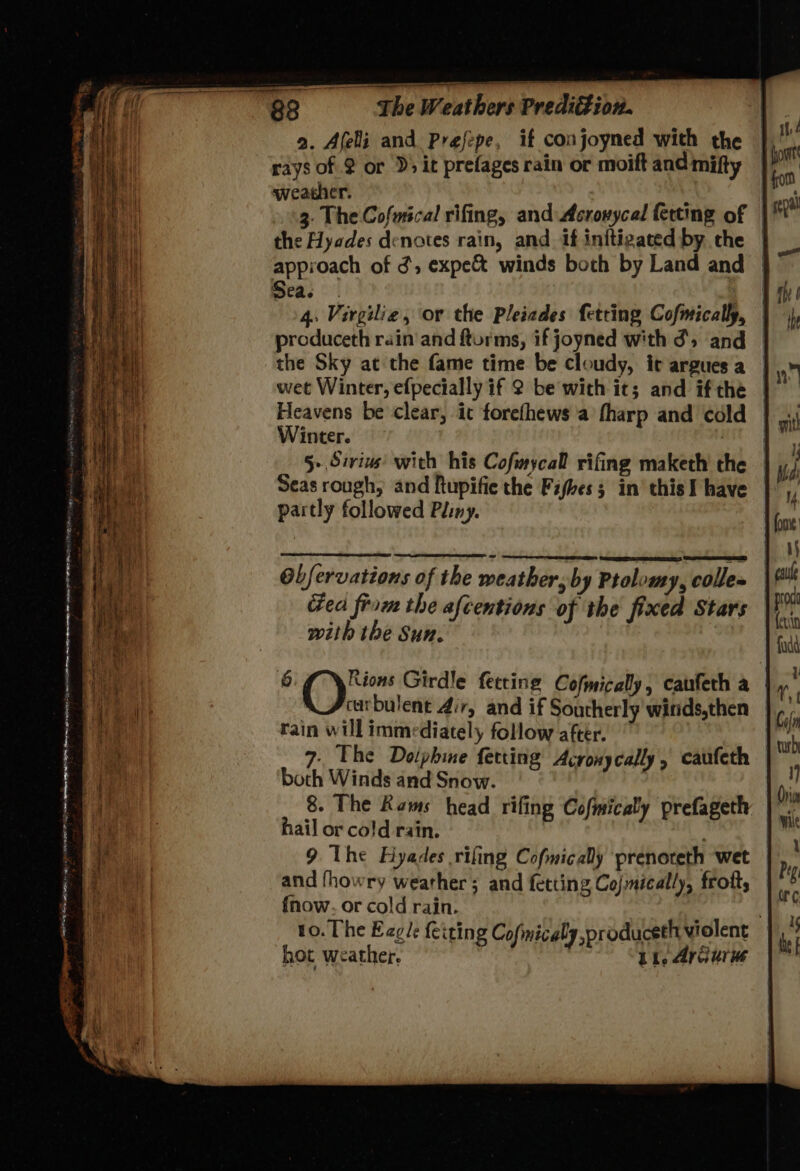 88 The Weathers Prediction.
2. Aſelli and Præſepe, if conjoyned with the
rays of ♀ or ☽, it preſages rain or moiſt and miſty
weather.
3. The Coſmical riſing, and Acronycal ſetting of
the Hyades denotes rain, and if inſtigated by the
approach of ♂, expect winds both by Land and
Sea.
4. Virgiliæ, or the Pleiades ſetting Coſmically,
produceth rain and ſtorms, if joyned with ♂, and
the Sky at the ſame time be cloudy, it argues a
wet Winter, eſpecially if ♀ be with it; and if the
Heavens be clear, it foreſhews a ſharp and cold
Winter.
5. Sirius with his Coſmycall riſing maketh the
Seas rough, and ſtupifie the Fiſhes; in this I have
partly followed Pliny.
Obſervations of the weather, by Ptolomy, colle-
cted from the aſcentions of the fixed Stars
with the Sun.
6. ORions Girdle ſetting Coſmically, cauſeth a
turbulent Air, and if Southerly winds, then
rain will immediately follow after.
7. The Dolphine ſetting Acronycally, cauſeth
both Winds and Snow.
8. The Rams head riſing Coſmically preſageth
hail or cold rain.
9 The Hyades riſing Coſmically prenoteth wet
and ſhowry weather; and ſetting Coſmically, froſt,
ſnow. or cold rain.
10. The Eagle ſetting Coſmicaly, produceth violent
hot weather. 11. Arcturus